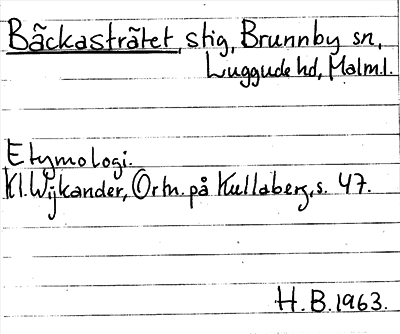 Bäckasträtet, stig, Brunnby sn,
Luggude hd, Malm.l.
Etymologi.
Kl. Wijkander, Ortn. på Kullaberg, s. 47.
H.B. 1963.